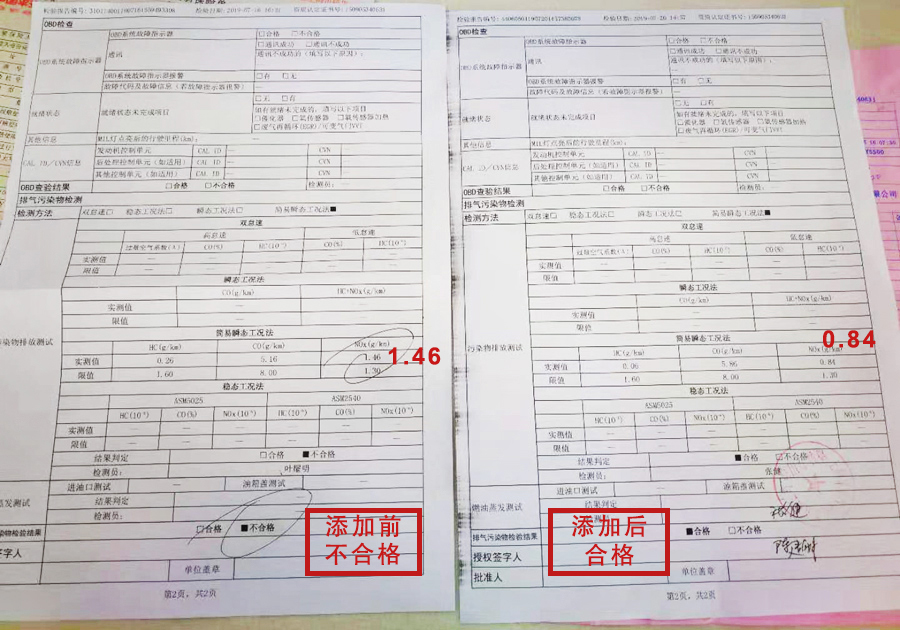 OBD检查
OBD系统故障指示器
OBD系统故障指示器
□合格 □不合格
通讯
□通讯成功 □通讯不成功
通讯不成功的（填写以下原因）:
OBD系统故障指示器报警
□有 □无
故障代码及故障信息（若故障指示器报警）
就绪状态
就绪状态未完成项目
□无 □有
如有就绪未完成的，填写以下项目
□催化器 □氧传感器 □氧传感器加热
□废气再循环(EGR)/可变气门VVT
其他信息
MIL灯点亮后的行驶里程(km):
CAL ID/CVN信息
发动机控制单元 CAL ID — CVN —
后处理控制单元（如适用） CAL ID — CVN —
其他控制单元（如适用） CAL ID — CVN —
OBD查验结果
□合格 □不合格 检测员: —
排气污染物检测
检测方法 双怠速□ 稳态工况法□ 瞬态工况法□ 简易瞬态工况法■
双怠速
高怠速 低怠速
过量空气系数(λ) CO(%) HC(10⁻⁶) CO(%) HC(10⁻⁶)
实测值 — — — — —
限值 — — — — —
瞬态工况法
CO(g/km) HC+NOx(g/km)
实测值 — —
限值 — —
污染物排放测试
简易瞬态工况法
HC(g/km) CO(g/km) NOx(g/km)
实测值 0.26 5.16 1.46
1.46
限值 1.60 8.00 1.30
稳态工况法
ASM5025 ASM2540
HC(10⁻⁶) CO(%) NOx(10⁻⁶) HC(10⁻⁶) CO(%) NOx(10⁻⁶)
实测值 — — — — — —
限值 — — — — — —
结果判定 □合格 ■不合格
检测员:
蒸发测试
进油口测试 — 油箱盖测试 —
结果判定 —
检测员: —
污染物检验结果 □合格 ■不合格
签字人
单位盖章
添加前
不合格
第2页，共2页
OBD检查
OBD系统故障指示器
OBD系统故障指示器
□合格 □不合格
通讯
□通讯成功 □通讯不成功
通讯不成功的（填写以下原因）:
OBD系统故障指示器报警
□有 □无
故障代码及故障信息（若故障指示器报警）
就绪状态
就绪状态未完成项目
□无 □有
如有就绪未完成的，填写以下项目
□催化器 □氧传感器 □氧传感器加热
□废气再循环(EGR)/可变气门VVT
其他信息
MIL灯点亮后的行驶里程(km):
CAL ID/CVN信息
发动机控制单元 CAL ID — CVN —
后处理控制单元（如适用） CAL ID — CVN —
其他控制单元（如适用） CAL ID — CVN —
OBD查验结果
□合格 □不合格 检测员: —
排气污染物检测
检测方法 双怠速□ 稳态工况法□ 瞬态工况法□ 简易瞬态工况法■
双怠速
高怠速 低怠速
过量空气系数(λ) CO(%) HC(10⁻⁶) CO(%) HC(10⁻⁶)
实测值 — — — — —
限值 — — — — —
瞬态工况法
CO(g/km) HC+NOx(g/km)
实测值 — —
限值 — —
污染物排放测试
简易瞬态工况法
0.84
HC(g/km) CO(g/km) NOx(g/km)
实测值 0.06 5.86 0.84
限值 1.60 8.00 1.30
稳态工况法
ASM5025 ASM2540
HC(10⁻⁶) CO(%) NOx(10⁻⁶) HC(10⁻⁶) CO(%) NOx(10⁻⁶)
实测值 — — — — — —
限值 — — — — — —
结果判定 ■合格 □不合格
检测员:
燃油蒸发测试
进油口测试 — 油箱盖测试 —
结果判定 —
排气污染物检验结果 ■合格 □不合格
授权签字人
批准人 单位盖章
添加后
合格
第2页，共2页